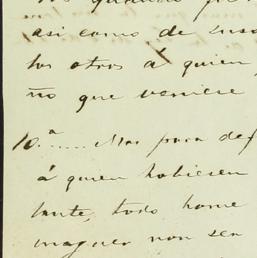 asi como de
los otros á quien
ño que veniere
10.ª..... Mas para def
á quien hobiesen
tante, todo home
maguer non sea